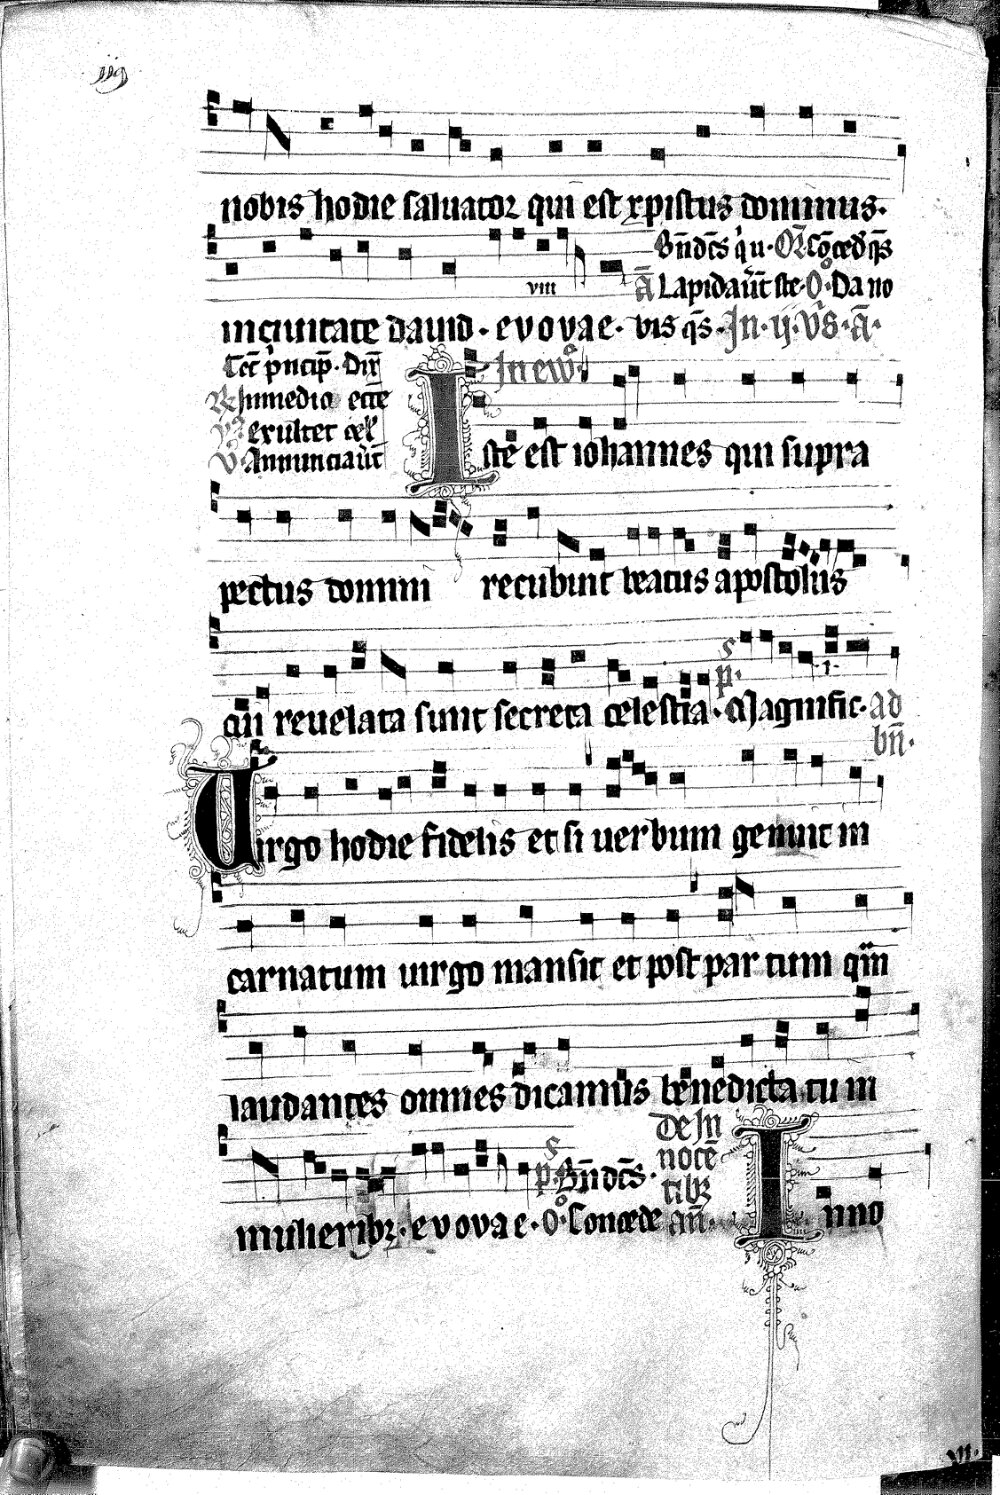 nobis hodie saluator qui est xpistus dominus.
Bn̄dc̄s q̇ u. Or̄ Cōced' qs̄
viii ā Lapidauer̄t ste. Oº. Da no
in ciuitate dauid. evovae. vis qs̄. In .ij. vs̄. ā.
In ewº.
Jnmedio ecc̄e
Exultet cel'
V. Annunciauer̄t
Iste est iohannes qui supra
pectus domini recubuit beatus apostolus
cui reuelata sunt secreta celestia. Magnific. ad
bn̄.
Uirgo hodie fidelis et si uerbum genuit in
carnatum uirgo mansit et post partum qm̄
laudantes omnes dicamus benedicta tu in
de Jn
nocē
tibꝫ
p. Bn̄dc̄s.
mulieribꝫ. evovae. Oº. Concede an̄. Inno
vii.